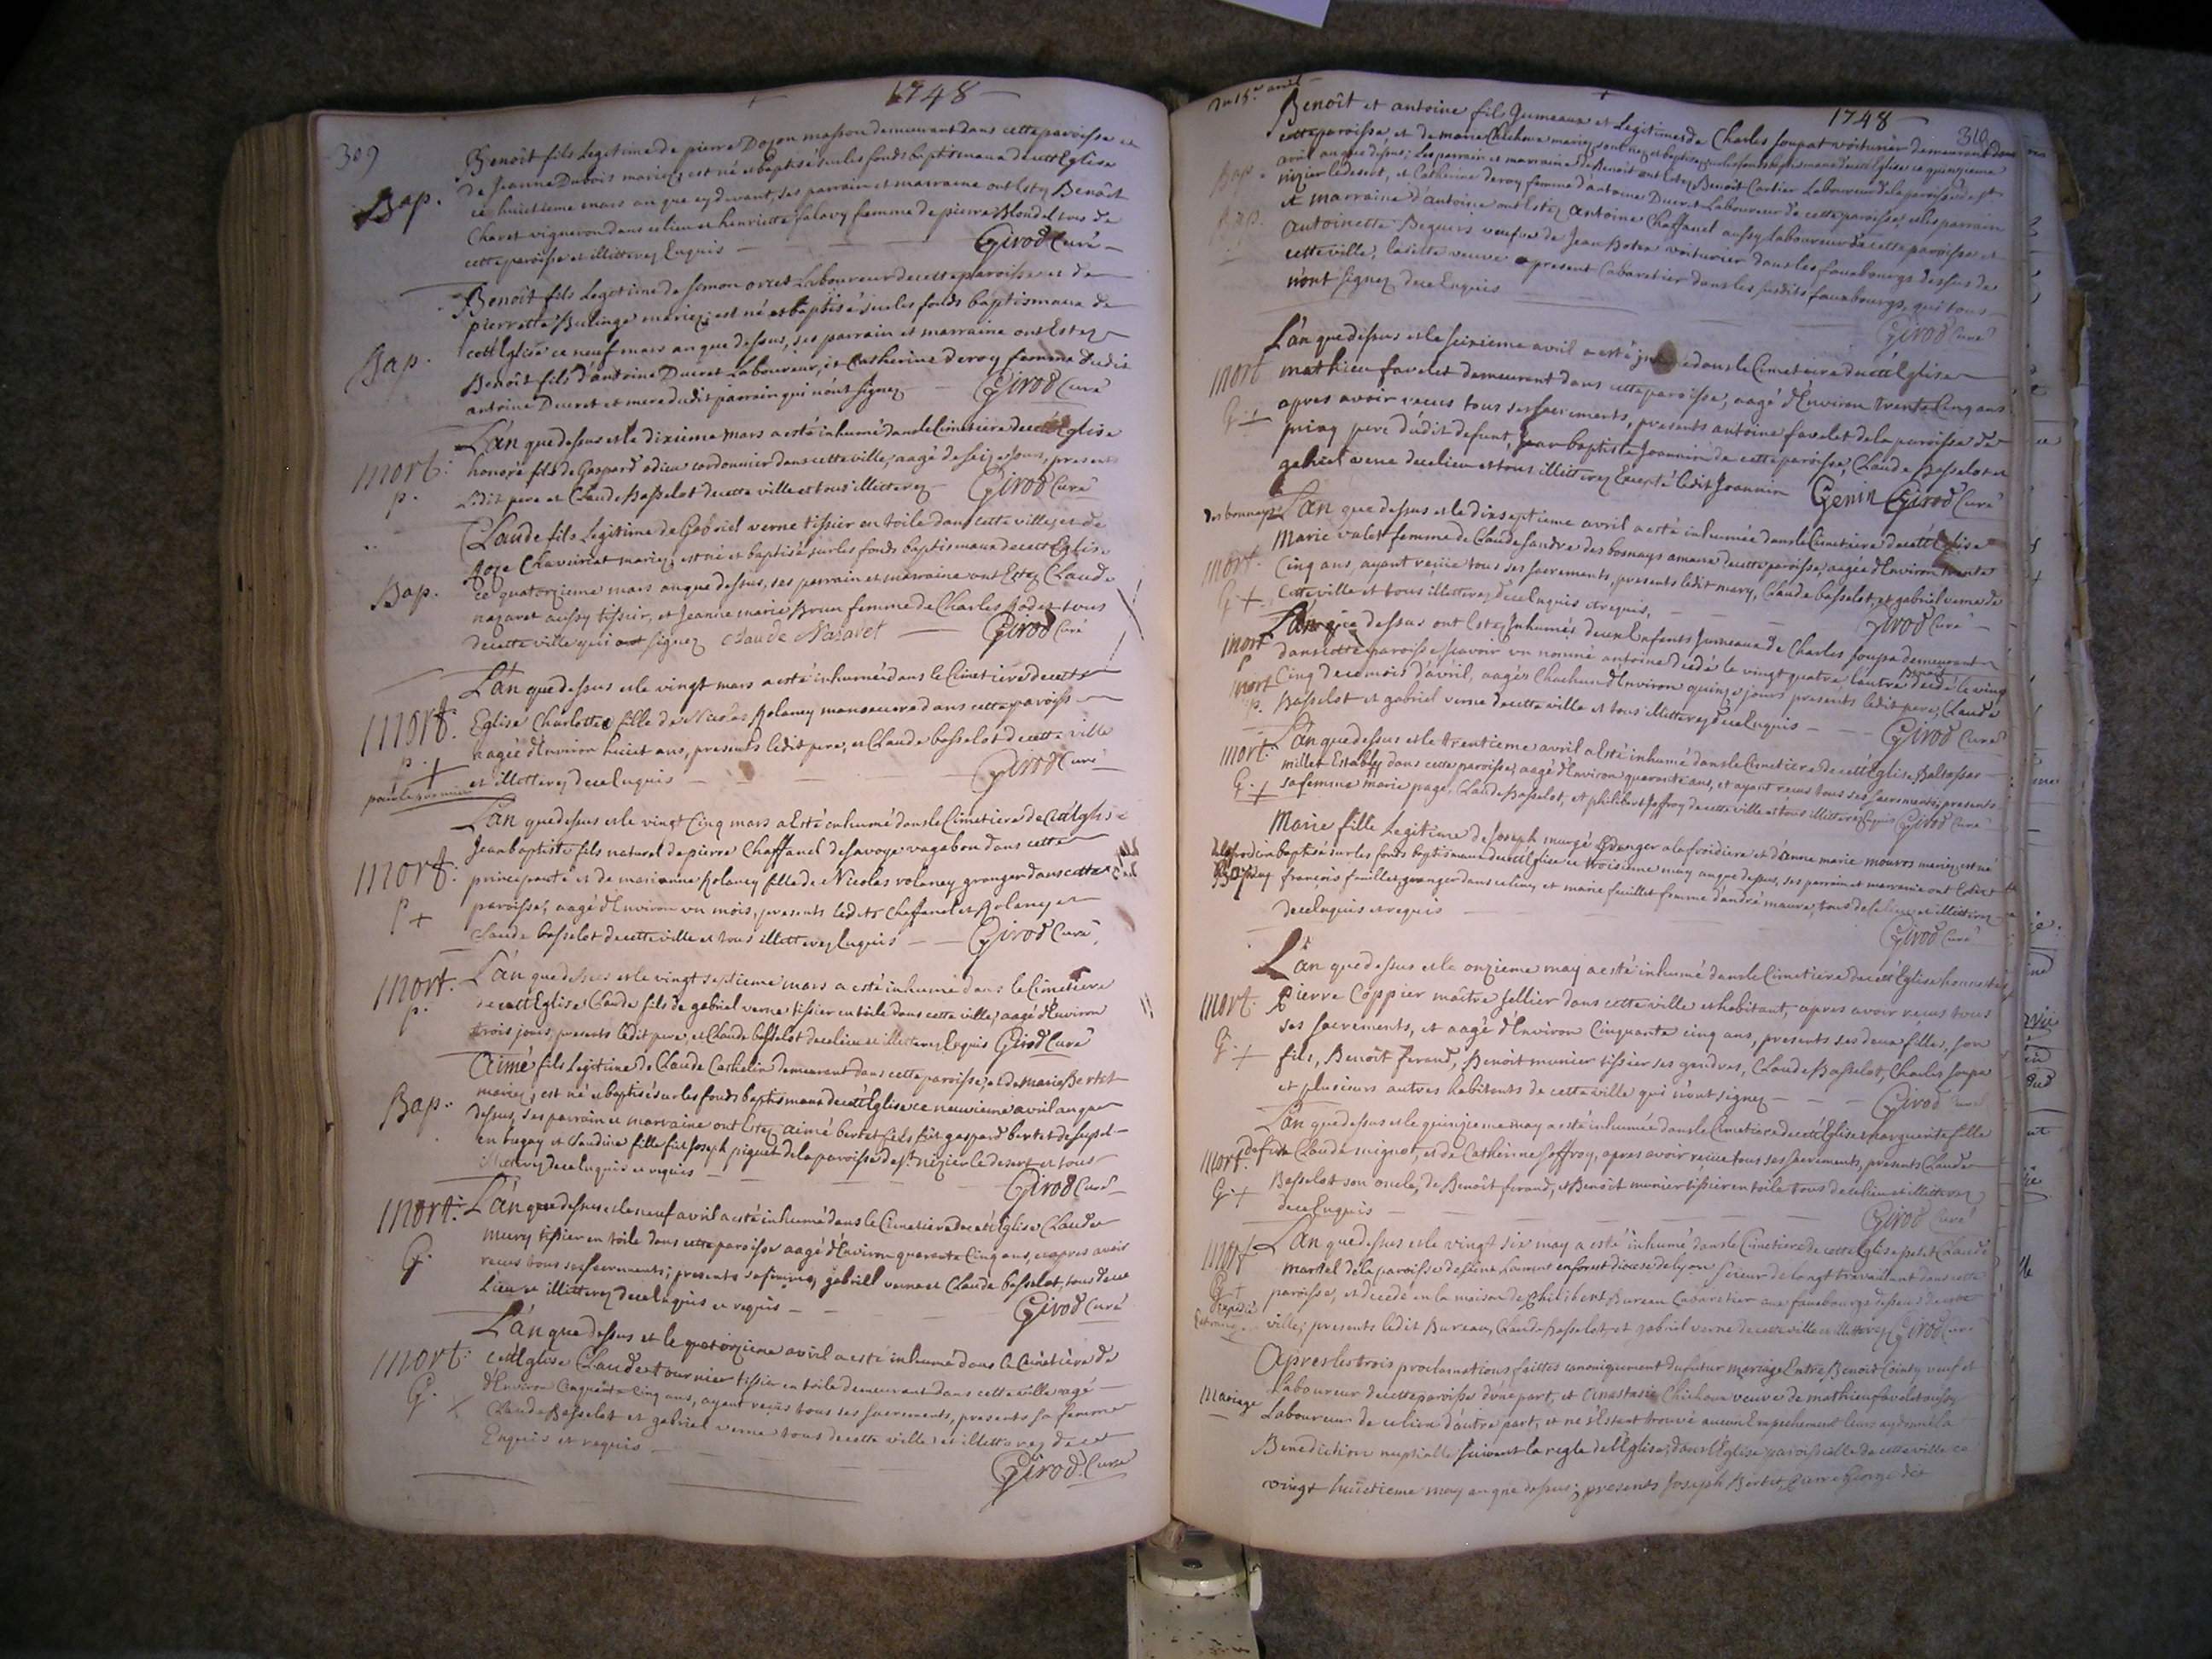 1748
309
Bap.
Benoît fils Legitime de pierre Dozon masson demeurant dans cette paroisse et
de Jeanne Dubois mariez, est né et baptisé sur les fonds baptismaux de cett Eglise
ce huictieme mars an que cy devant, ses parrain et marraine ont Estez Benoît
Charet vigneron dans ce lieu et henriette Salavy femme de pierre Blondel tous de
cette paroisse et illitterez Enquis — Girod Curé
Bap.
Benoît fils Legetime de simon orcet Laboureur de cette paroisse et de
pierrette Bulinge mariez, est né et baptisé sur les fonds baptismaux de
cett Eglise ce neuf mars an que dessus, ses parrain et marraine ont Estez
Benoît fils d'antoine Ducret Laboureur, et Catherine deroy femme dudit
antoine Ducret et mere dudit parrain qui n'ont signez — Girod Curé
mort.
p.
L'an que dessus et le dixieme mars a esté inhumé dans le Cimetiere de cett Eglise
honoré fils de Gaspard odieu cordonnier dans cette ville, aagé de seize jours, presents
Ledit pere et Claude Basselot de cette ville et tous illitterez — Girod Curé
Bap.
Claude fils Legitime de Gabriel verne tissier en toile dans cette ville, et de
Roze Chavuriat mariez, est né et baptisé sur les fonds baptismaux de cett Eglise
ce quatorzieme mars an que dessus, ses parrain et marraine ont Estez Claude
nazaret aussy tissier, et Jeanne marie Brun femme de Charles Rodet tous
de cette ville qui ont signez Claude Nazaret — Girod Curé
mort.
p. +
L'an que dessus et le vingt mars a esté inhumée dans le Cimetiere de cette
Eglise Charlotte fille de Nicolas Rolancy manoeuvre dans cette paroisse
aagée d'Environ huict ans, presents ledit pere, et Claude basselot de cette ville
et illitterez de ce Enquis — Girod Curé
mort.
p +
L'an que dessus et le vingt Cinq mars a Esté inhumé dans le Cimetiere de Cett Eglise
Jean baptiste fils naturel de pierre Chaffanel de savoye vagabon dans cette
principauté et de marianne Rolancy fille de Nicolas rolancy granger dans cette
paroisse, aagé d'Environ un mois, presents lédits Chaffanel et Rolancy et
Claude basselot de cette ville et tous illitterez Enquis — Girod Curé
mort.
p.
L'an que dessus et le vingt septieme mars a esté inhumé dans le Cimetiere
de cett Eglise Claude fils de gabriel verne tissier en toile dans cette ville, aagé d'Environ
trois jours, presents ledit pere, et Claude basselot de ce lieu et illitterez Enquis Girod Curé
Bap.
Aimé fils Legitime de Claude Cathelin demeurant dans cette paroisse, et de marie Bertet
mariez, est né et baptisé sur les fonds baptismaux de cett Eglise ce neuvieme avril an que
dessus, ses parrain et marraine ont Estez aimé bertet fils fût gaspard bertet de
en bugey et Claudine fille fût Joseph piquet de la paroisse de st nizier le desert et tous
illitterez de ce Enquis et requis — Girod Curé
mort.
G.
L'an que dessus et le neuf avril a esté inhumé dans le Cimetiere de cett Eglise Claude
mury tissier en toile dans cette paroisse aagé d'Environ quarante Cinq ans, et apres avoir
recus tous ses sacrements, presents sa femme, gabriel verne et Claude basselot, tous de ce
Lieu et illitterez de ce Enquis et requis — Girod Curé
mort.
G. +
L'an que dessus et le quatorzieme avril a esté inhumé dans le Cimetiere de
cett Eglise Claude tournier tissier en toile demeurant dans cette ville agé
d'Environ Cinquante Cinq ans, ayant recus tous ses sacrements, presents sa femme
Claude Basselot et gabriel verne tous de cette ville et illitterez de ce
Enquis et requis — Girod Curé
1748
310
Du 15e avril
Bap.
Bap.
Benoît et antoine fils Jumeaux et Legitimes de Charles soupat voiturier demeurant dans
cette paroisse, et de marie Chichoux mariez, sont nez et baptisez sur les fonds baptismaux de cett Eglise ce quinzieme
avril an que dessus, Les parrain et marraine de Benoît ont Estez Benoît Cartier Laboureur de la paroisse de st
nizier le desert, et Catherine deroy femme d'antoine Ducret Laboureur de cette paroisse; et les parrain
et marraine d'antoine ont Estez antoine Chaffanel aussy Laboureur de cette paroisse et
antoinette Beguers veufve de Jean Boter voiturier dans les fauxbourgs dessus de
cette ville, ladite veuve a present Cabaretier dans les susdits fauxbourgs, qui tous
n'ont signez de ce Enquis — Girod Curé
mort
G. +
L'an que dessus et le seizieme avril a esté dans le Cimetiere du cett Eglise
mathieu favelet demeurant dans cette paroisse, aagé d'Environ trente Cinq ans
apres avoir recus tous ses sacrements, presents antoine favelet de la paroisse de
priay pere dudit defunt, Jean baptiste Joannin de cette paroisse, Claude Basselot et
gabriel verne de ce lieu et tous illitterez Excepté ledit Joannin Genin Girod Curé
des bonnays
mort.
G. +
L'an que dessus et le dixseptieme avril a esté inhumée dans le Cimetiere de cett Eglise
Marie valet femme de Claude sandre des bosnays amaux de cette paroisse, aagée d'Environ trente
Cinq ans, ayant reçüe tous ses sacrements, presents ledit mary, Claude basselot, et gabriel verne de
cette ville et tous illitterez de ce Enquis et requis. — Girod Curé
mort
p
mort
p.
L'an que dessus ont Estez Inhumés deux Enfants Jumeaux de Charles soupa demeurant
dans cette paroisse scavoir un nommé antoine decedé le vingt quatre l'autre Benoît decedé le vingt
Cinq de ce mois d'avril, aagés Chachun d'Environ quinze jours, presents ledit pere, Claude
Basselot et gabriel verne de cette ville et tous illitterez de ce Enquis — Girod Curé
mort.
G. +
L'an que dessus et le trentieme avril a Esté inhumé dans le Cimetiere de cett Eglise Baltassar
millet Establÿ dans cette paroisse, aagé d'Environ quarante ans, et ayant recus tous ses sacrements, presents
sa femme marie page, Claude Basselot, et philibert Joffroy de cette ville et tous illitterez Enquis Girod Curé
Marie fille Legitime de Joseph murgé Granger a la froidiere et d'anne marie mouros mariez, est né
baptisé sur les fonds baptismaux de cett Eglise ce troisieme may an que dessus, ses parrain et marraine ont Estez
françois feuillet granger dans ce lieu, et marie feuillet femme d'andré maure, tous de ce lieu et illitterez
de ce Enquis et requis — Girod Curé
mort.
G. +
L'an que dessus et le onzieme may a esté inhumé dans le Cimetiere de cett Eglise honneste
Pierre Coppier maître sellier dans cette ville et habitant, apres avoir reçus tous
ses sacrements, et aagé d'Environ Cinquante cinq ans, presents ses deux filles, son
fils, Benoît ferand, Benoît munier tissier ses gendres, Claude Basselot, Charles soupa
et plusieurs autres habitants de cette ville qui n'ont signez — Girod Curé
mort.
G. +
L'an que dessus et le quinzieme may a esté inhumée dans le Cimetiere de cett Eglise marguerite fille
defunt Claude mignot, et de Catherine Joffroy, apres avoir reçüe tous ses sacrements, presents Claude
Basselot son oncle, de Benoît ferand, et Benoît munier tissier en toile tous de ce lieu et illitterez
de ce Enquis — Girod Curé
mort
G +
L'an que dessus et le vingt six may a esté inhumé dans le Cimetiere de cette Eglise petit Claude
martel de la paroisse de saint Laurent en forest diocese de lyon scieur de longt travaillant dans cette
paroisse, et decedé en la maison de Philibert Bureau Cabaretier aux fauxbourgs dessus de cette
ville, presents ledit Bureau, Claude Basselot, et gabriel verne de cette ville et illitterez Girod Curé
Mariage
Apres les trois proclamations faittes canoniquement du futur mariage Entre Benoît Cointy veuf et
Laboureur de cette paroisse d'une part, et Anastasie Chichoux veuve de mathieu favelet aussy
Laboureur de ce lieu d'autre part, et ne s'Estant trouvé aucun Empechement leurs ay donné la
Benediction nuptialle suivant la regle de l'Eglise, dans l'Eglise paroissialle de cette ville ce
vingt huictieme may an que dessus; presents Joseph Bertet, Pierre George dit